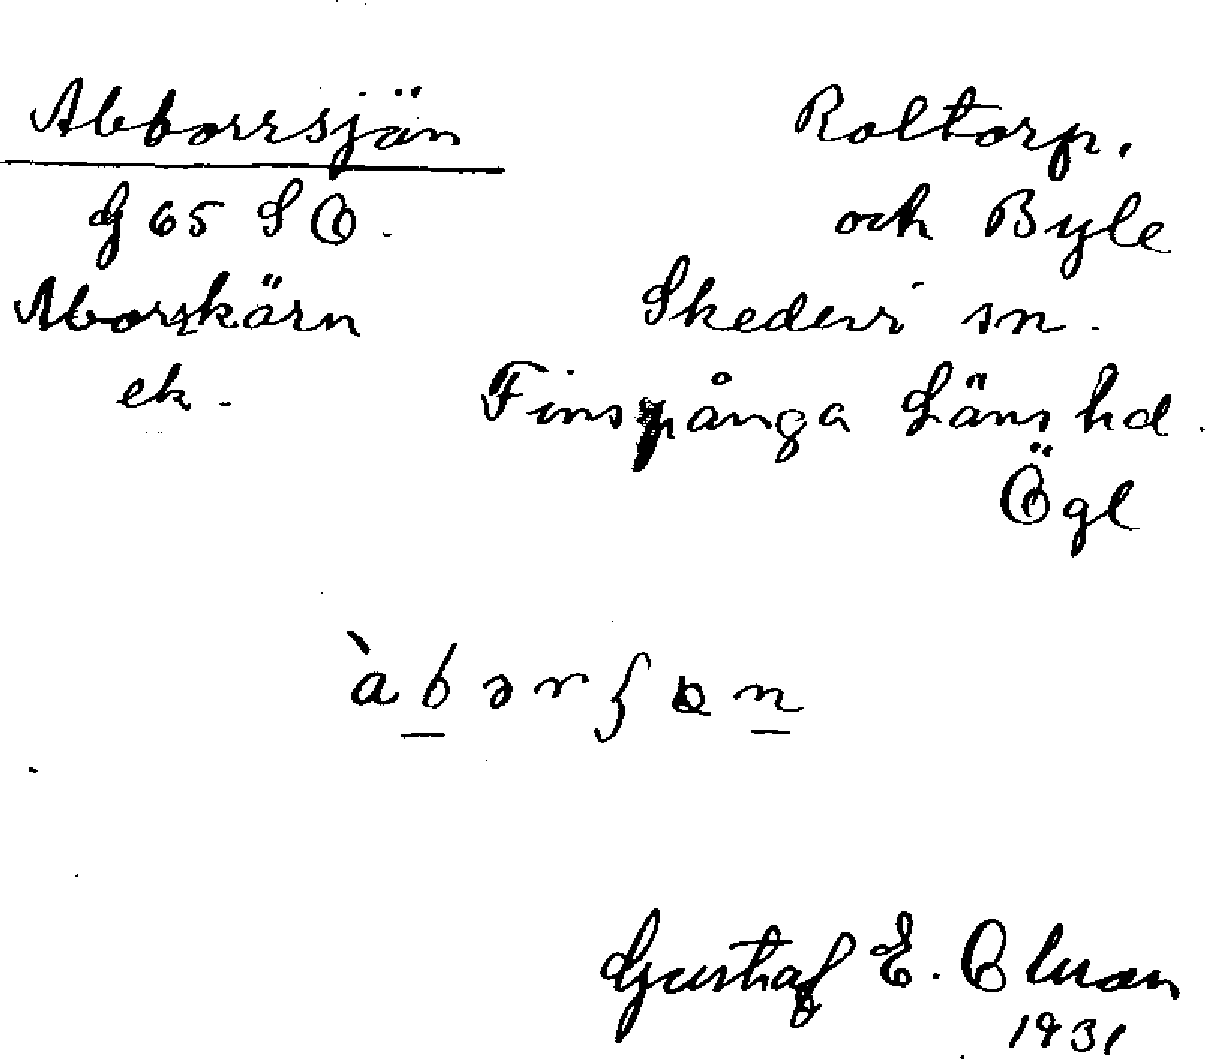 Abborrsjön
Roltorp.
G 65 SO.
och Byle
Aborrkärn
Skedevi sn.
ek.
Finspånga Läns hd.
Ögl
Gustaf E.
1931